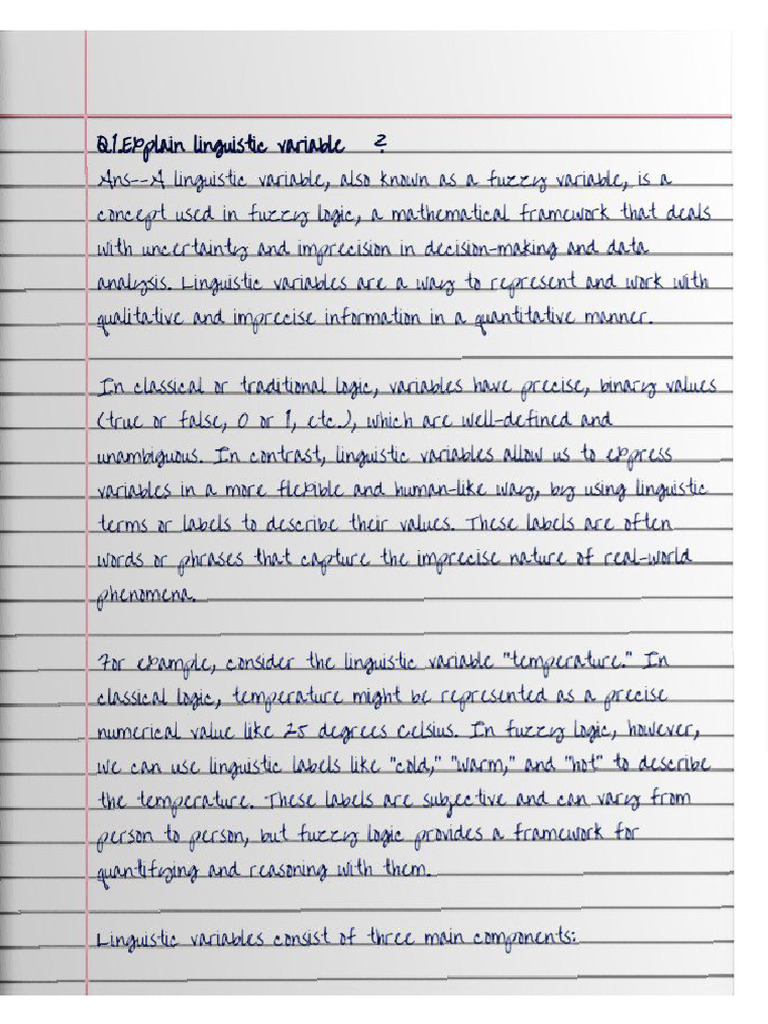 Q1.Explain linguistic variable ?
Ans--A linguistic variable, also known as a fuzzy variable, is a
concept used in fuzzy logic, a mathematical framework that deals
with uncertainty and imprecision in decision-making and data
analysis. Linguistic variables are a way to represent and work with
qualitative and imprecise information in a quantitative manner.
In classical or traditional logic, variables have precise, binary values
(true or false, 0 or 1, etc.), which are well-defined and
unambiguous. In contrast, linguistic variables allow us to express
variables in a more flexible and human-like way, by using linguistic
terms or labels to describe their values. These labels are often
words or phrases that capture the imprecise nature of real-world
phenomena.
For example, consider the linguistic variable "temperature." In
classical logic, temperature might be represented as a precise
numerical value like 25 degrees Celsius. In fuzzy logic, however,
we can use linguistic labels like "cold," "warm," and "hot" to describe
the temperature. These labels are subjective and can vary from
person to person, but fuzzy logic provides a framework for
quantifying and reasoning with them.
Linguistic variables consist of three main components: